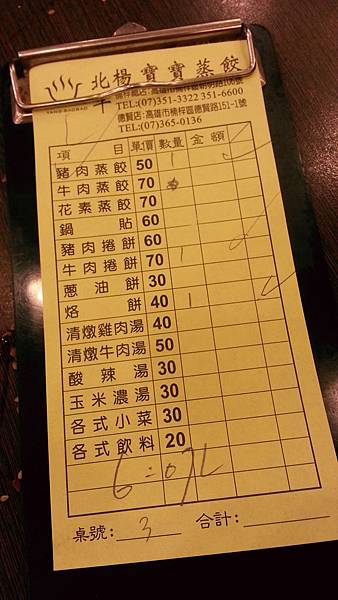 北楊寶寶蒸餃
YANG BAOBAO
TEL:(07)351-3322 351-6600
德賢店:高雄市楠梓區德賢路151-1號
TEL:(07)365-0136
項目 單價 數量 金額
豬肉蒸餃 50 1
牛肉蒸餃 70
花素蒸餃 70
鍋貼 60
豬肉捲餅 60
牛肉捲餅 70 1
蔥油餅 30
烙餅 40 1
清燉雞肉湯 40
清燉牛肉湯 50
酸辣湯 30
玉米濃湯 30
各式小菜 30
各式飲料 20
桌號: 3 合計: